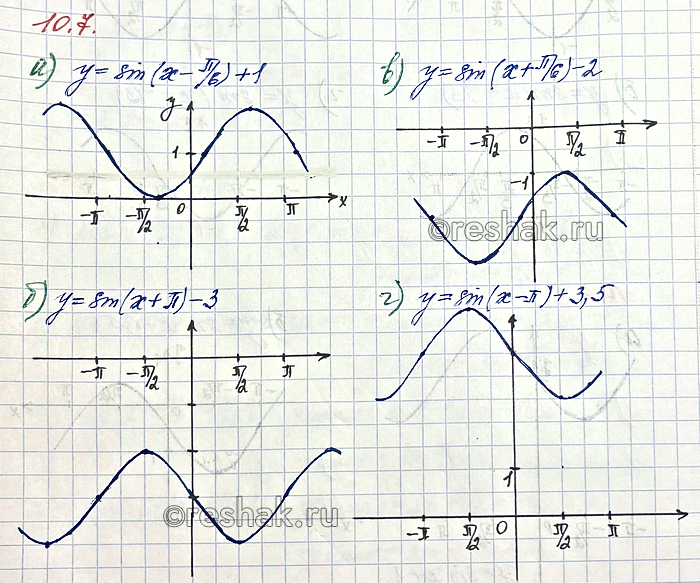 10.7.
а) y = sin(x - π/6) + 1
y
1
-π -π/2 0 π/2 π x
в) y = sin(x + π/6) - 2
-π -π/2 0 π/2 π
-1
©reshak.ru
б) y = sin(x + π) - 3
-π -π/2 π/2 π
©reshak.ru
г) y = sin(x - π) + 3,5
1
-π π/2 0 π/2 π